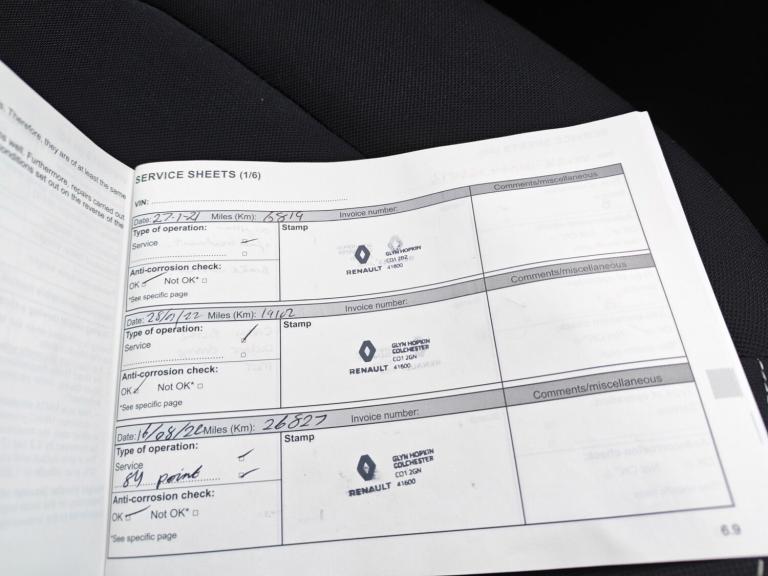 s. Therefore, they are of at least the same
as well. Furthermore, repairs carried out
conditions set out on the reverse of the
SERVICE SHEETS (1/6)
VIN:
Date: 27-1-21 Miles (Km): 6819 Invoice number: Comments/miscellaneous
Type of operation: Stamp
Service
GLYN HOPKIN
CO1 2GZ
RENAULT 41600
Anti-corrosion check:
OK Not OK* □
*See specific page
Date: Miles (Km): Invoice number: Comments/miscellaneous
Type of operation: Stamp
Service
GLYN HOPKIN
COLCHESTER
CO1 2GN
RENAULT 41600
Anti-corrosion check:
OK Not OK* □
*See specific page
Date: 16/08/22 Miles (Km): 26827 Invoice number: Comments/miscellaneous
Type of operation: Stamp
Service
84 point
GLYN HOPKIN
COLCHESTER
CO1 2GN
RENAULT 41600
Anti-corrosion check:
OK Not OK* □
*See specific page
6.9